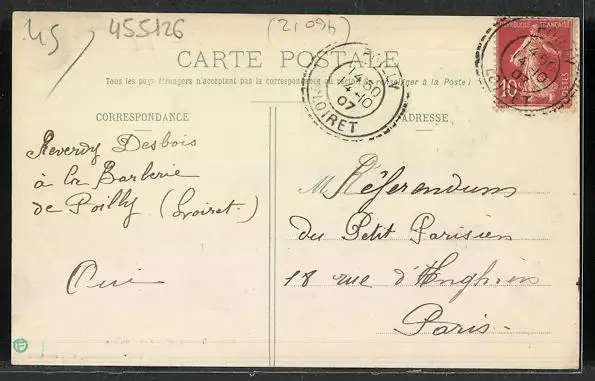 45
455126
CARTE POSTALE
Tous les pays étrangers n'acceptent pas la correspondance au recto (Se renseigner à la Poste)
CORRESPONDANCE
ADRESSE
14 30
4-10
07
LOIRET
14 30
4-10
07
LOIRET
10c
POSTES
Reverdy Desbois
à la Barberie
de Poilly (Loiret.)
Oui
M Référendum
du Petit Parisien
18 rue d'Enghien
Paris.